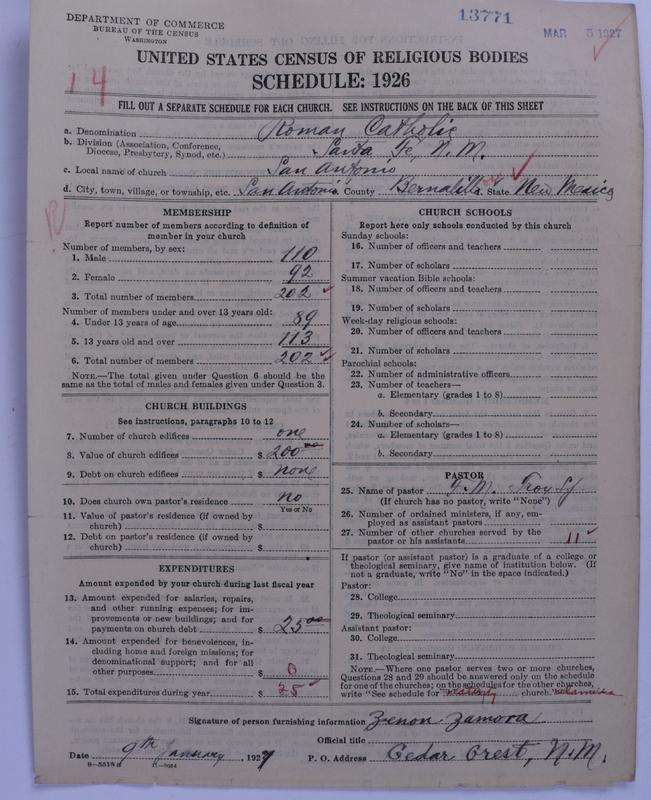 DEPARTMENT OF COMMERCE
BUREAU OF THE CENSUS
WASHINGTON
13771
MAR 5 1927
14
UNITED STATES CENSUS OF RELIGIOUS BODIES
SCHEDULE: 1926
FILL OUT A SEPARATE SCHEDULE FOR EACH CHURCH. SEE INSTRUCTIONS ON THE BACK OF THIS SHEET
a. Denomination Roman Catholic
b. Division (Association, Conference,
Diocese, Presbytery, Synod, etc.) Santa Fe, N. M.
c. Local name of church San Antonio
d. City, town, village, or township, etc. San Antonio County Bernalillo State New Mexico
MEMBERSHIP
Report number of members according to definition of
member in your church
Number of members, by sex:
1. Male 110
2. Female 92
3. Total number of members 202
Number of members under and over 13 years old:
4. Under 13 years of age 89
5. 13 years old and over 113
6. Total number of members 202
NOTE.—The total given under Question 6 should be the
same as the total of males and females given under Question 3.
CHURCH BUILDINGS
See instructions, paragraphs 10 to 12
7. Number of church edifices one
8. Value of church edifices $ 200 00
9. Debt on church edifices $ none
10. Does church own pastor's residence no
Yes or No
11. Value of pastor's residence (if owned by
church) $
12. Debt on pastor's residence (if owned by
church) $
EXPENDITURES
Amount expended by your church during last fiscal year
13. Amount expended for salaries, repairs,
and other running expenses; for im-
provements or new buildings; and for
payments on church debt $ 25 00
14. Amount expended for benevolences, in-
cluding home and foreign missions; for
denominational support; and for all
other purposes $ 0
15. Total expenditures during year $ 25
CHURCH SCHOOLS
Report here only schools conducted by this church
Sunday schools:
16. Number of officers and teachers
17. Number of scholars
Summer vacation Bible schools:
18. Number of officers and teachers
19. Number of scholars
Week-day religious schools:
20. Number of officers and teachers
21. Number of scholars
Parochial schools:
22. Number of administrative officers
23. Number of teachers—
a. Elementary (grades 1 to 8)
b. Secondary
24. Number of scholars—
a. Elementary (grades 1 to 8)
b. Secondary
PASTOR
25. Name of pastor F. M. Troy S.J.
(If church has no pastor, write "None")
26. Number of ordained ministers, if any, em-
ployed as assistant pastors
27. Number of other churches served by the
pastor or his assistants 11
If pastor (or assistant pastor) is a graduate of a college or
theological seminary, give name of institution below. (If
not a graduate, write "No" in the space indicated.)
Pastor:
28. College
29. Theological seminary
Assistant pastor:
30. College
31. Theological seminary
NOTE.—Where one pastor serves two or more churches,
Questions 28 and 29 should be answered only on the schedule
for one of the churches; on the schedules for the other churches,
write "See schedule for church."
Signature of person furnishing information Zenon Zamora
Official title
Date 9th January, 1927 P. O. Address Cedar Crest, N.M.
8—5518a 11—9084